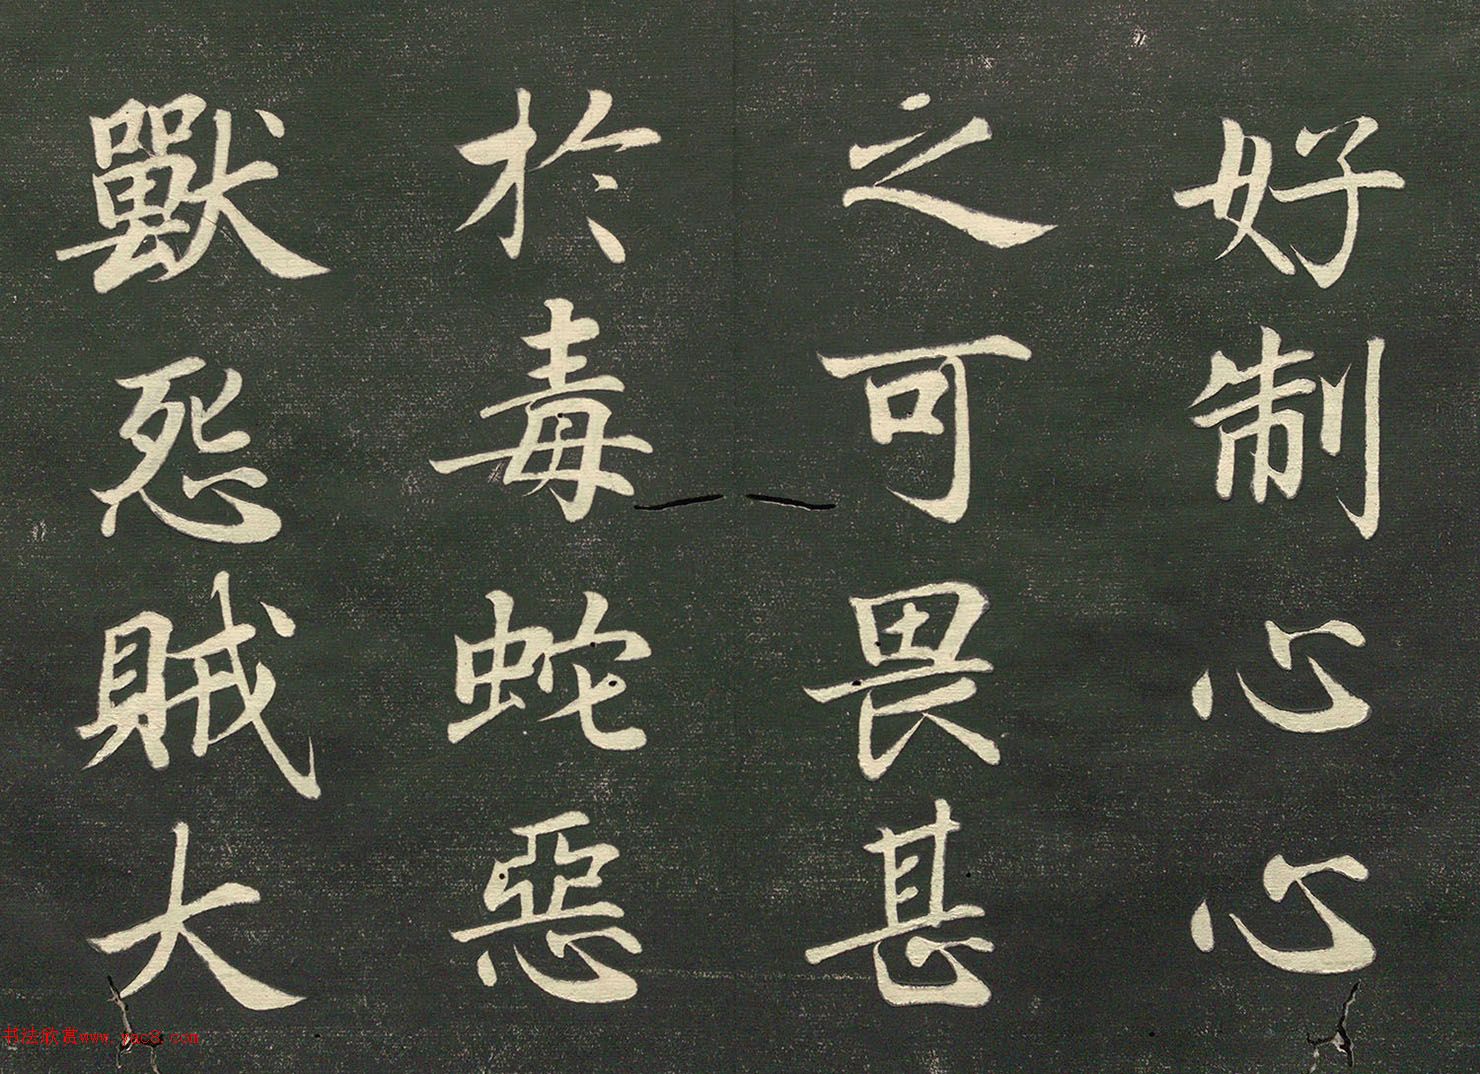 好制心心
之可畏甚
於毒蛇惡
獸怨賊大
书法欣赏www.yac8.com